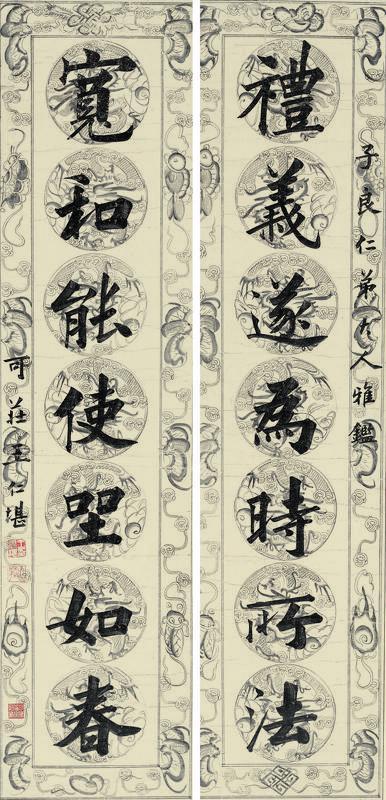 子良仁弟大人雅鑑
禮義遂為時所法
寬和能使坐如春
可莊王仁堪